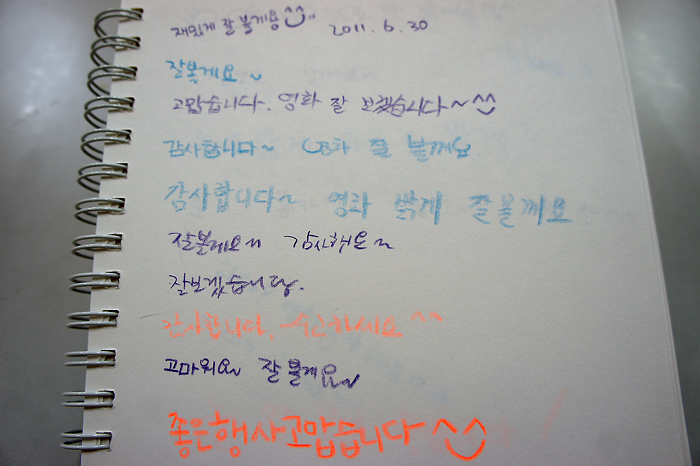 재밌게 잘 볼게용 ^^ 2011. 6. 30
잘볼게요~
고맙습니다. 영화 잘 보겠습니다~ ^^
감사합니다~ 영화 잘 볼께요
감사합니다~ 영화 밝게 잘볼께요
잘볼게요~ 감사해요~
잘보겠습니당.
감사합니다. 수고하세요 ^^
고마워요~ 잘 볼게요~
좋은행사고맙습니다 ^^